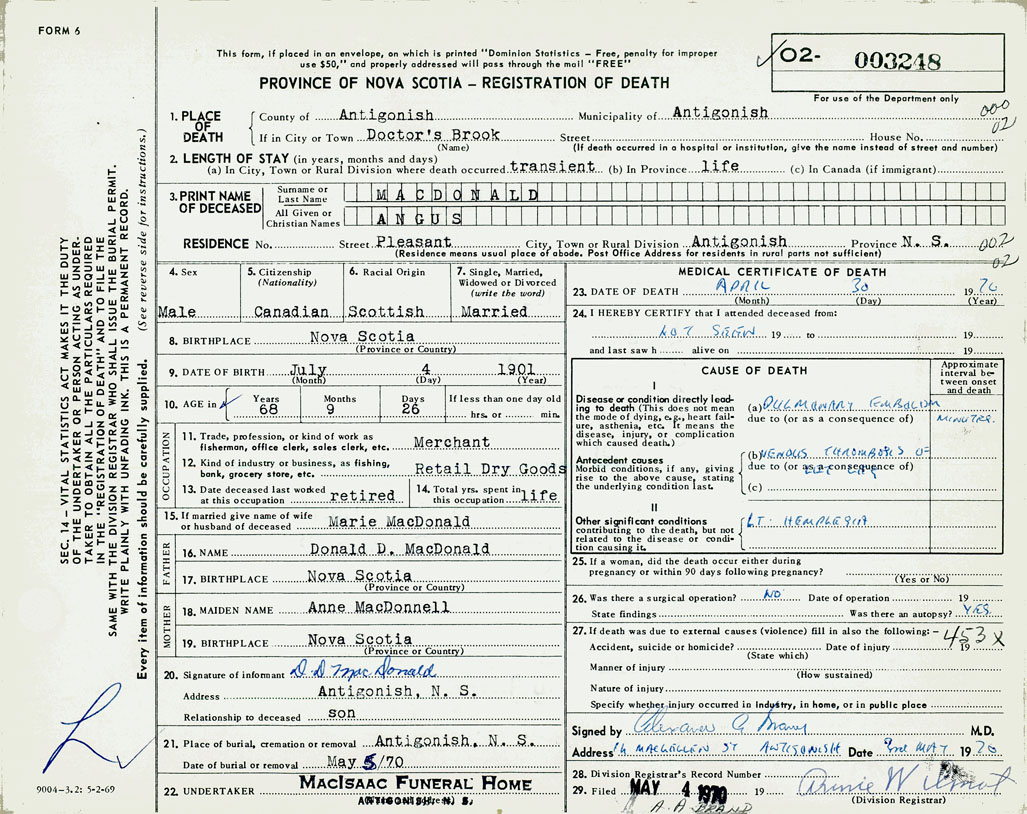 FORM 6
This form, if placed in an envelope, on which is printed "Dominion Statistics – Free, penalty for improper
use $50," and properly addressed will pass through the mail "FREE"
PROVINCE OF NOVA SCOTIA – REGISTRATION OF DEATH
O2- 003248
For use of the Department only
000
02
1. PLACE OF DEATH
County of Antigonish Municipality of Antigonish
If in City or Town Doctor's Brook Street House No.
(Name) (If death occurred in a hospital or institution, give the name instead of street and number)
2. LENGTH OF STAY (in years, months and days)
(a) In City, Town or Rural Division where death occurred transient (b) In Province life (c) In Canada (if immigrant)
3. PRINT NAME OF DECEASED
Surname or Last Name MACDONALD
All Given or Christian Names ANGUS
RESIDENCE No. Street Pleasant City, Town or Rural Division Antigonish Province N. S.
(Residence means usual place of abode. Post Office Address for residents in rural parts not sufficient)
002
02
SEC. 14 – VITAL STATISTICS ACT MAKES IT THE DUTY
OF THE UNDERTAKER OR PERSON ACTING AS UNDER-
TAKER TO OBTAIN ALL THE PARTICULARS REQUIRED
IN THE "REGISTRATION OF DEATH" AND TO FILE THE
SAME WITH THE DIVISION REGISTRAR WHO SHALL ISSUE THE BURIAL PERMIT.
WRITE PLAINLY WITH UNFADING INK. THIS IS A PERMANENT RECORD.
Every item of information should be carefully supplied. (See reverse side for instructions.)
4. Sex
Male
5. Citizenship
(Nationality)
Canadian
6. Racial Origin
Scottish
7. Single, Married,
Widowed or Divorced
(write the word)
Married
8. BIRTHPLACE Nova Scotia
(Province or Country)
9. DATE OF BIRTH July 4 1901
(Month) (Day) (Year)
10. AGE in
Years 68
Months 9
Days 26
If less than one day old
hrs. or min.
OCCUPATION
11. Trade, profession, or kind of work as
fisherman, office clerk, sales clerk, etc. Merchant
12. Kind of industry or business, as fishing,
bank, grocery store, etc. Retail Dry Goods
13. Date deceased last worked
at this occupation retired
14. Total yrs. spent in
this occupation life
15. If married give name of wife
or husband of deceased Marie MacDonald
FATHER
16. NAME Donald D. MacDonald
17. BIRTHPLACE Nova Scotia
(Province or Country)
MOTHER
18. MAIDEN NAME Anne MacDonnell
19. BIRTHPLACE Nova Scotia
(Province or Country)
20. Signature of informant D. D MacDonald
Address Antigonish, N. S.
Relationship to deceased son
21. Place of burial, cremation or removal Antigonish, N. S.
Date of burial or removal May 5/70
22. UNDERTAKER MACISAAC FUNERAL HOME
ANTIGONISH, N. S.
9004-3.2: 5-2-69
MEDICAL CERTIFICATE OF DEATH
23. DATE OF DEATH APRIL 30 1970
(Month) (Day) (Year)
24. I HEREBY CERTIFY that I attended deceased from:
NOT SEEN 19 to 19
and last saw h alive on 19
CAUSE OF DEATH
Approximate
interval be-
tween onset
and death
I
Disease or condition directly lead-
ing to death (This does not mean
the mode of dying, e.g., heart fail-
ure, asthenia, etc. It means the
disease, injury, or complication
which caused death.)
(a) PULMONARY EMBOLISM
due to (or as a consequence of) MINUTES.
Antecedent causes
Morbid conditions, if any, giving
rise to the above cause, stating
the underlying condition last.
(b) VENOUS THROMBOSIS OF
due to (or as a consequence of)
LEFT LEG
(c)
II
Other significant conditions
contributing to the death, but not
related to the disease or condi-
tion causing it.
LT. HEMPLEGIA
25. If a woman, did the death occur either during
pregnancy or within 90 days following pregnancy?
(Yes or No)
26. Was there a surgical operation? NO Date of operation 19
State findings Was there an autopsy? YES
27. If death was due to external causes (violence) fill in also the following: –
453X
Accident, suicide or homicide? Date of injury 19
(State which)
Manner of injury
(How sustained)
Nature of injury
Specify whether injury occurred in Industry, in home, or in public place
Signed by M.D.
Address 16 MACLELLEN ST ANTIGONISH Date 2nd MAY 1970
28. Division Registrar's Record Number
29. Filed MAY 4 1970 19 Annie W Wilmot
(Division Registrar)
A. A BRAND